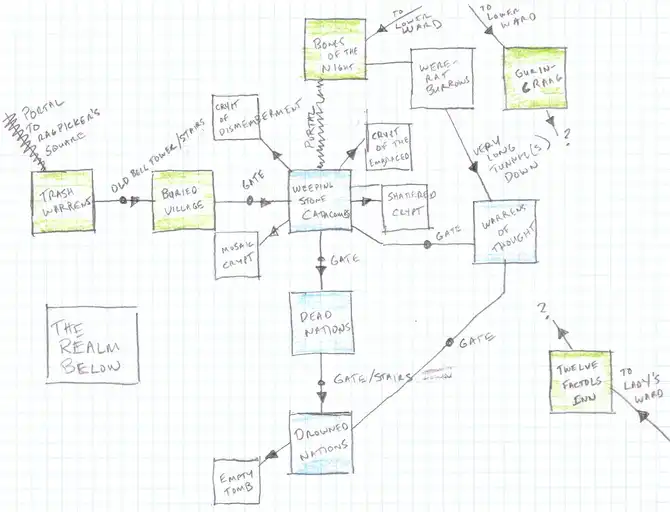 TO
LOWER
WARD
TO
LOWER
WARD
BONES
OF THE
NIGHT
WERE-
RAT
BURROWS
GURIN-
GRAAG
?
PORTAL
TO
RAGPICKER'S
SQUARE
CRYPT
OF
DISMEMBERMENT
PORTAL
CRYPT
OF THE
EMBRACED
VERY
LONG
TUNNEL(S)
DOWN
OLD BELL TOWER/STAIRS
TRASH
WARRENS
BURIED
VILLAGE
GATE
WEEPING
STONE
CATACOMBS
SHATTERED
CRYPT
WARRENS
OF
THOUGHT
MOSAIC
CRYPT
GATE
GATE
THE
REALM
BELOW
DEAD
NATIONS
GATE
?
GATE/STAIRS
TWELVE
FACTOLS
INN
TO
LADY'S
WARD
DROWNED
NATIONS
EMPTY
TOMB